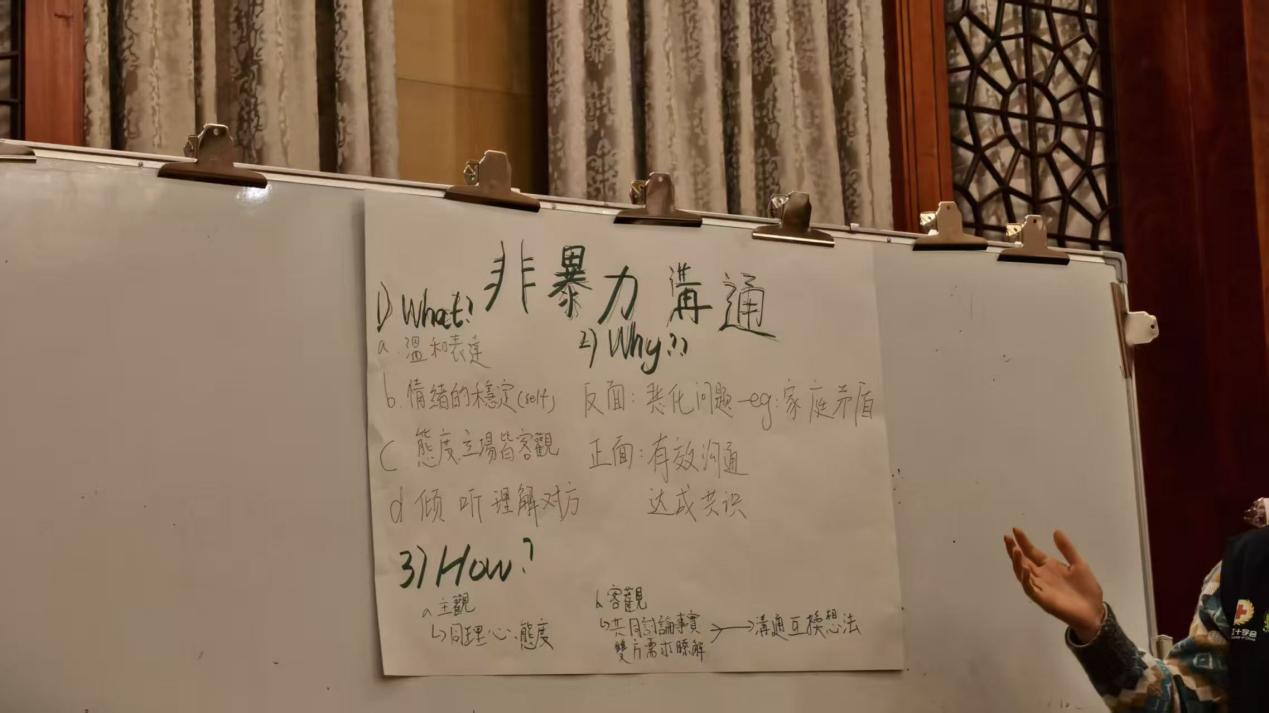 非暴力溝通
1) What?
a. 溫和表達
b. 情緒的穩定(self)
c 態度立場皆客觀
d 倾听理解对方
2) Why??
反面：恶化问题—eg：家庭矛盾
正面：有效沟通
达成共识
3) How?
a 主觀
↳同理心、態度
b 客觀
↳共同討論事實
雙方需求瞭解
→溝通互換想法
十字会